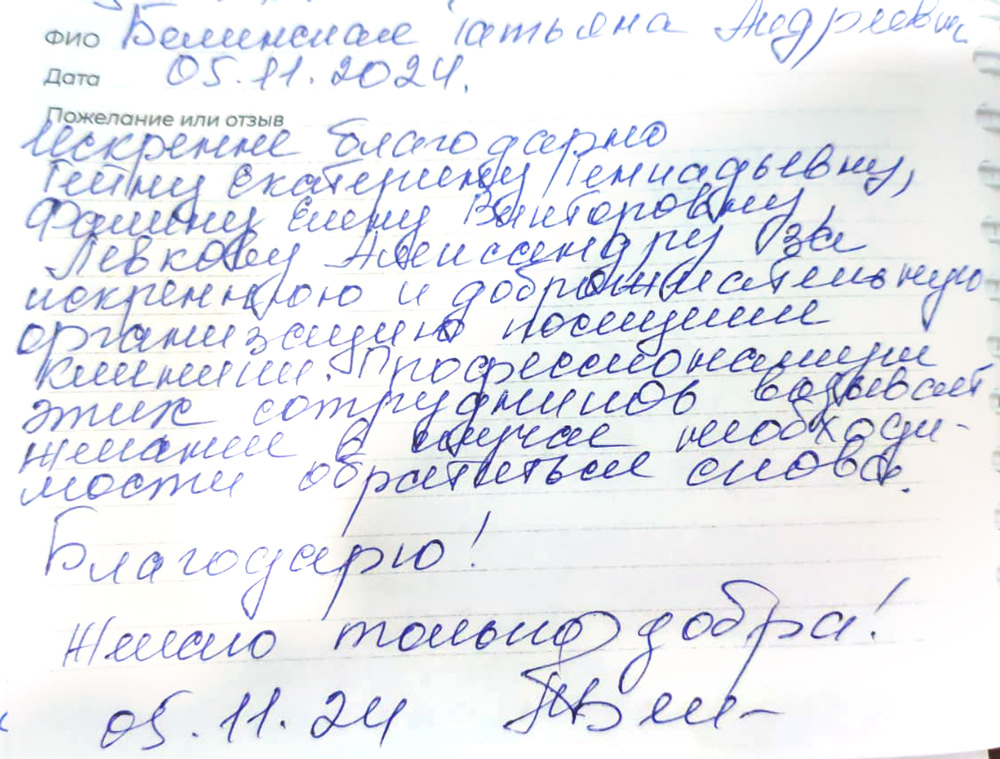 ФИО Белинская Татьяна Андреевна
Дата 05.11.2024.
Пожелание или отзыв
Искренне благодарю
Екатерину Геннадьевну,
Фомину Елену Викторовну,
Левкову Александру за
искреннюю и доброжелательную
организацию посещения
клиники. Профессионализм
этих сотрудников вызывает
желание в случае необходи-
мости обратиться снова.
Благодарю!
Желаю только добра!
05.11.24